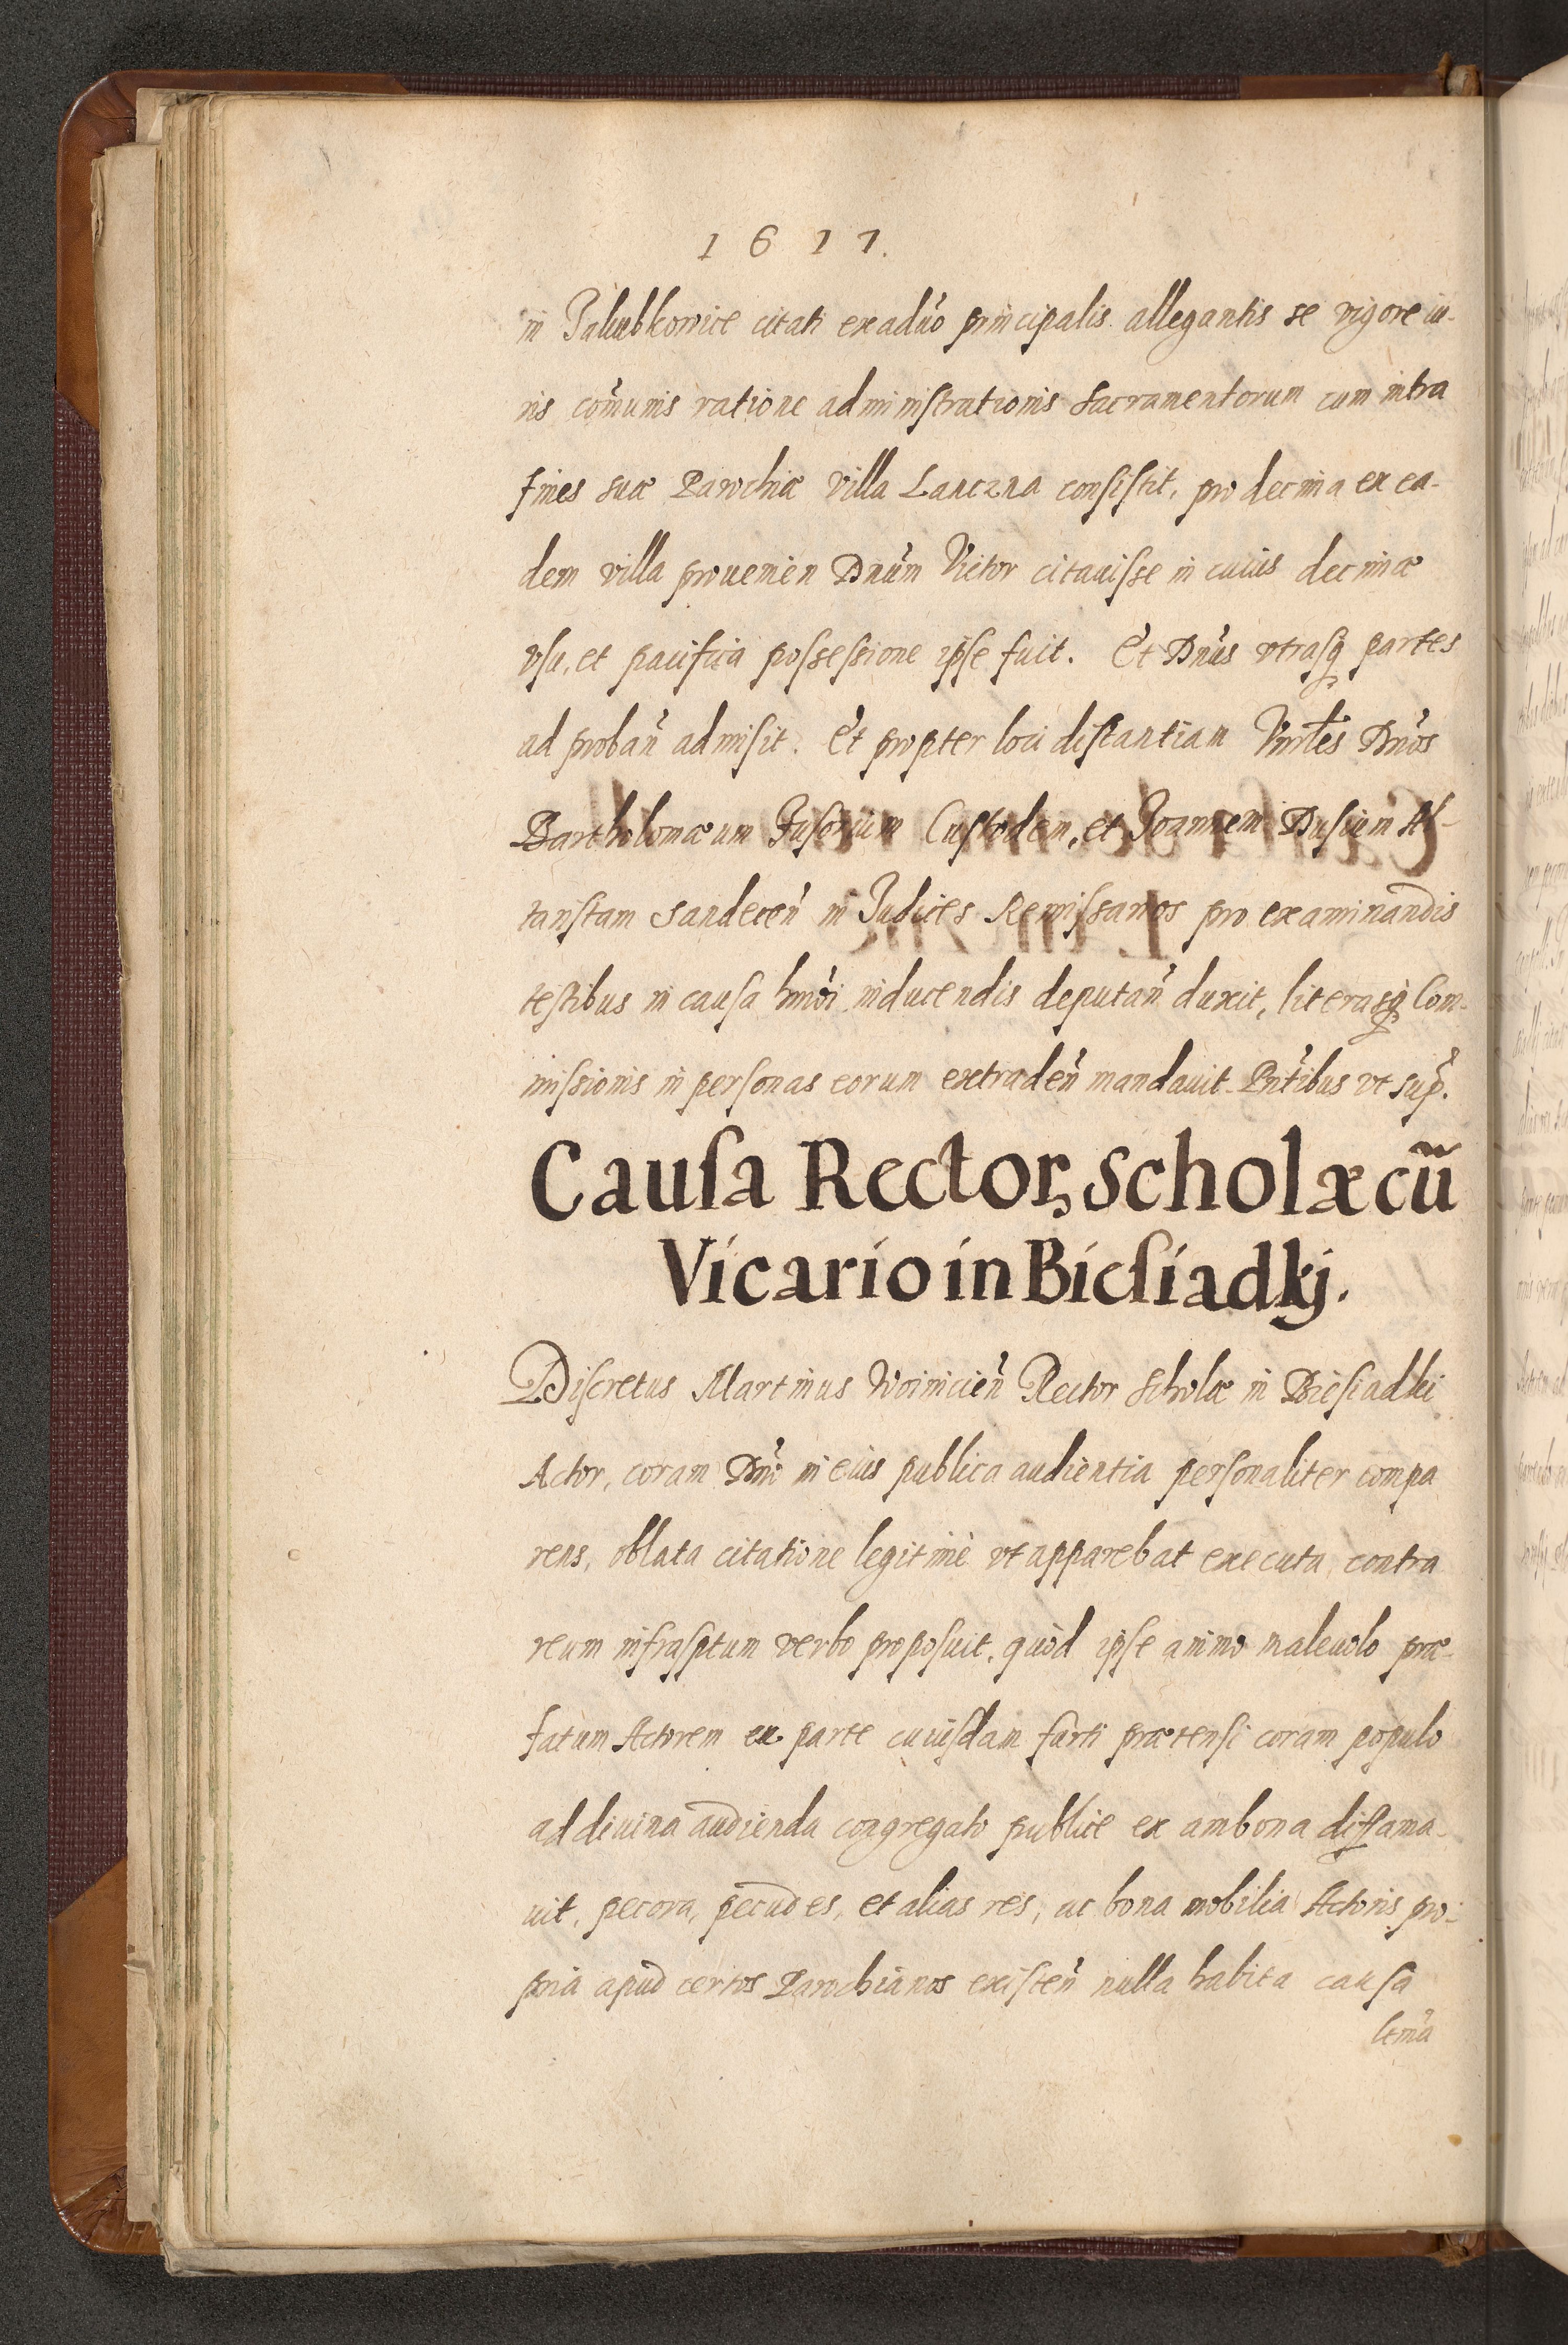 1611.
in Jakubkowice citati ex aduo principalis allegantis se vigore iu-
ris cõmunis ratione administrationis Sacramentorum cum intra
fines suæ Parochiæ villa Lanczna consistit, pro decima ex ea-
dem villa prouenien̄ Dnūm Victor citauisse in cuius decimæ
vsu, et pacifica possessione ipse fuit. Et Dnūs vtrasq̃ partes
ad proban̄ admisit. Et propter loci distantiam Dnōs
Bartholomæum Fusorium Custodem, et Joannem Dusium Al-
taristam Sandecen̄ in Judices Remissarios pro examinandis
testibus in causa hmōi inducendis deputan̄ duxit, literasq̃ Com-
missionis in personas eorum extraden̄ mandauit. Pntībus vt sup̄.
Causa Rectoꝝ Scholæ cũ
Vicario in Biesiadkj.
Discretus Martinus Woinicien̄ Rector Scholæ in Biesiadki
Actor, coram Dnō in eius publica audientia personaliter compa
rens, oblata citatione legitimè vt apparebat executa, contra
reum infrasptum verbo proposuit, quòd ipse animo maleuolo præ-
fatum Actorem ex parte cuiusdam furti prætensi coram populo
ad diuina audienda congregato publice ex ambona diffama-
uit, pecora, pecudes, et alias res, ac bona mobilia Actoris pro-
pria apud certos Parochianos existen̄ nulla habita causa
ltm̄a